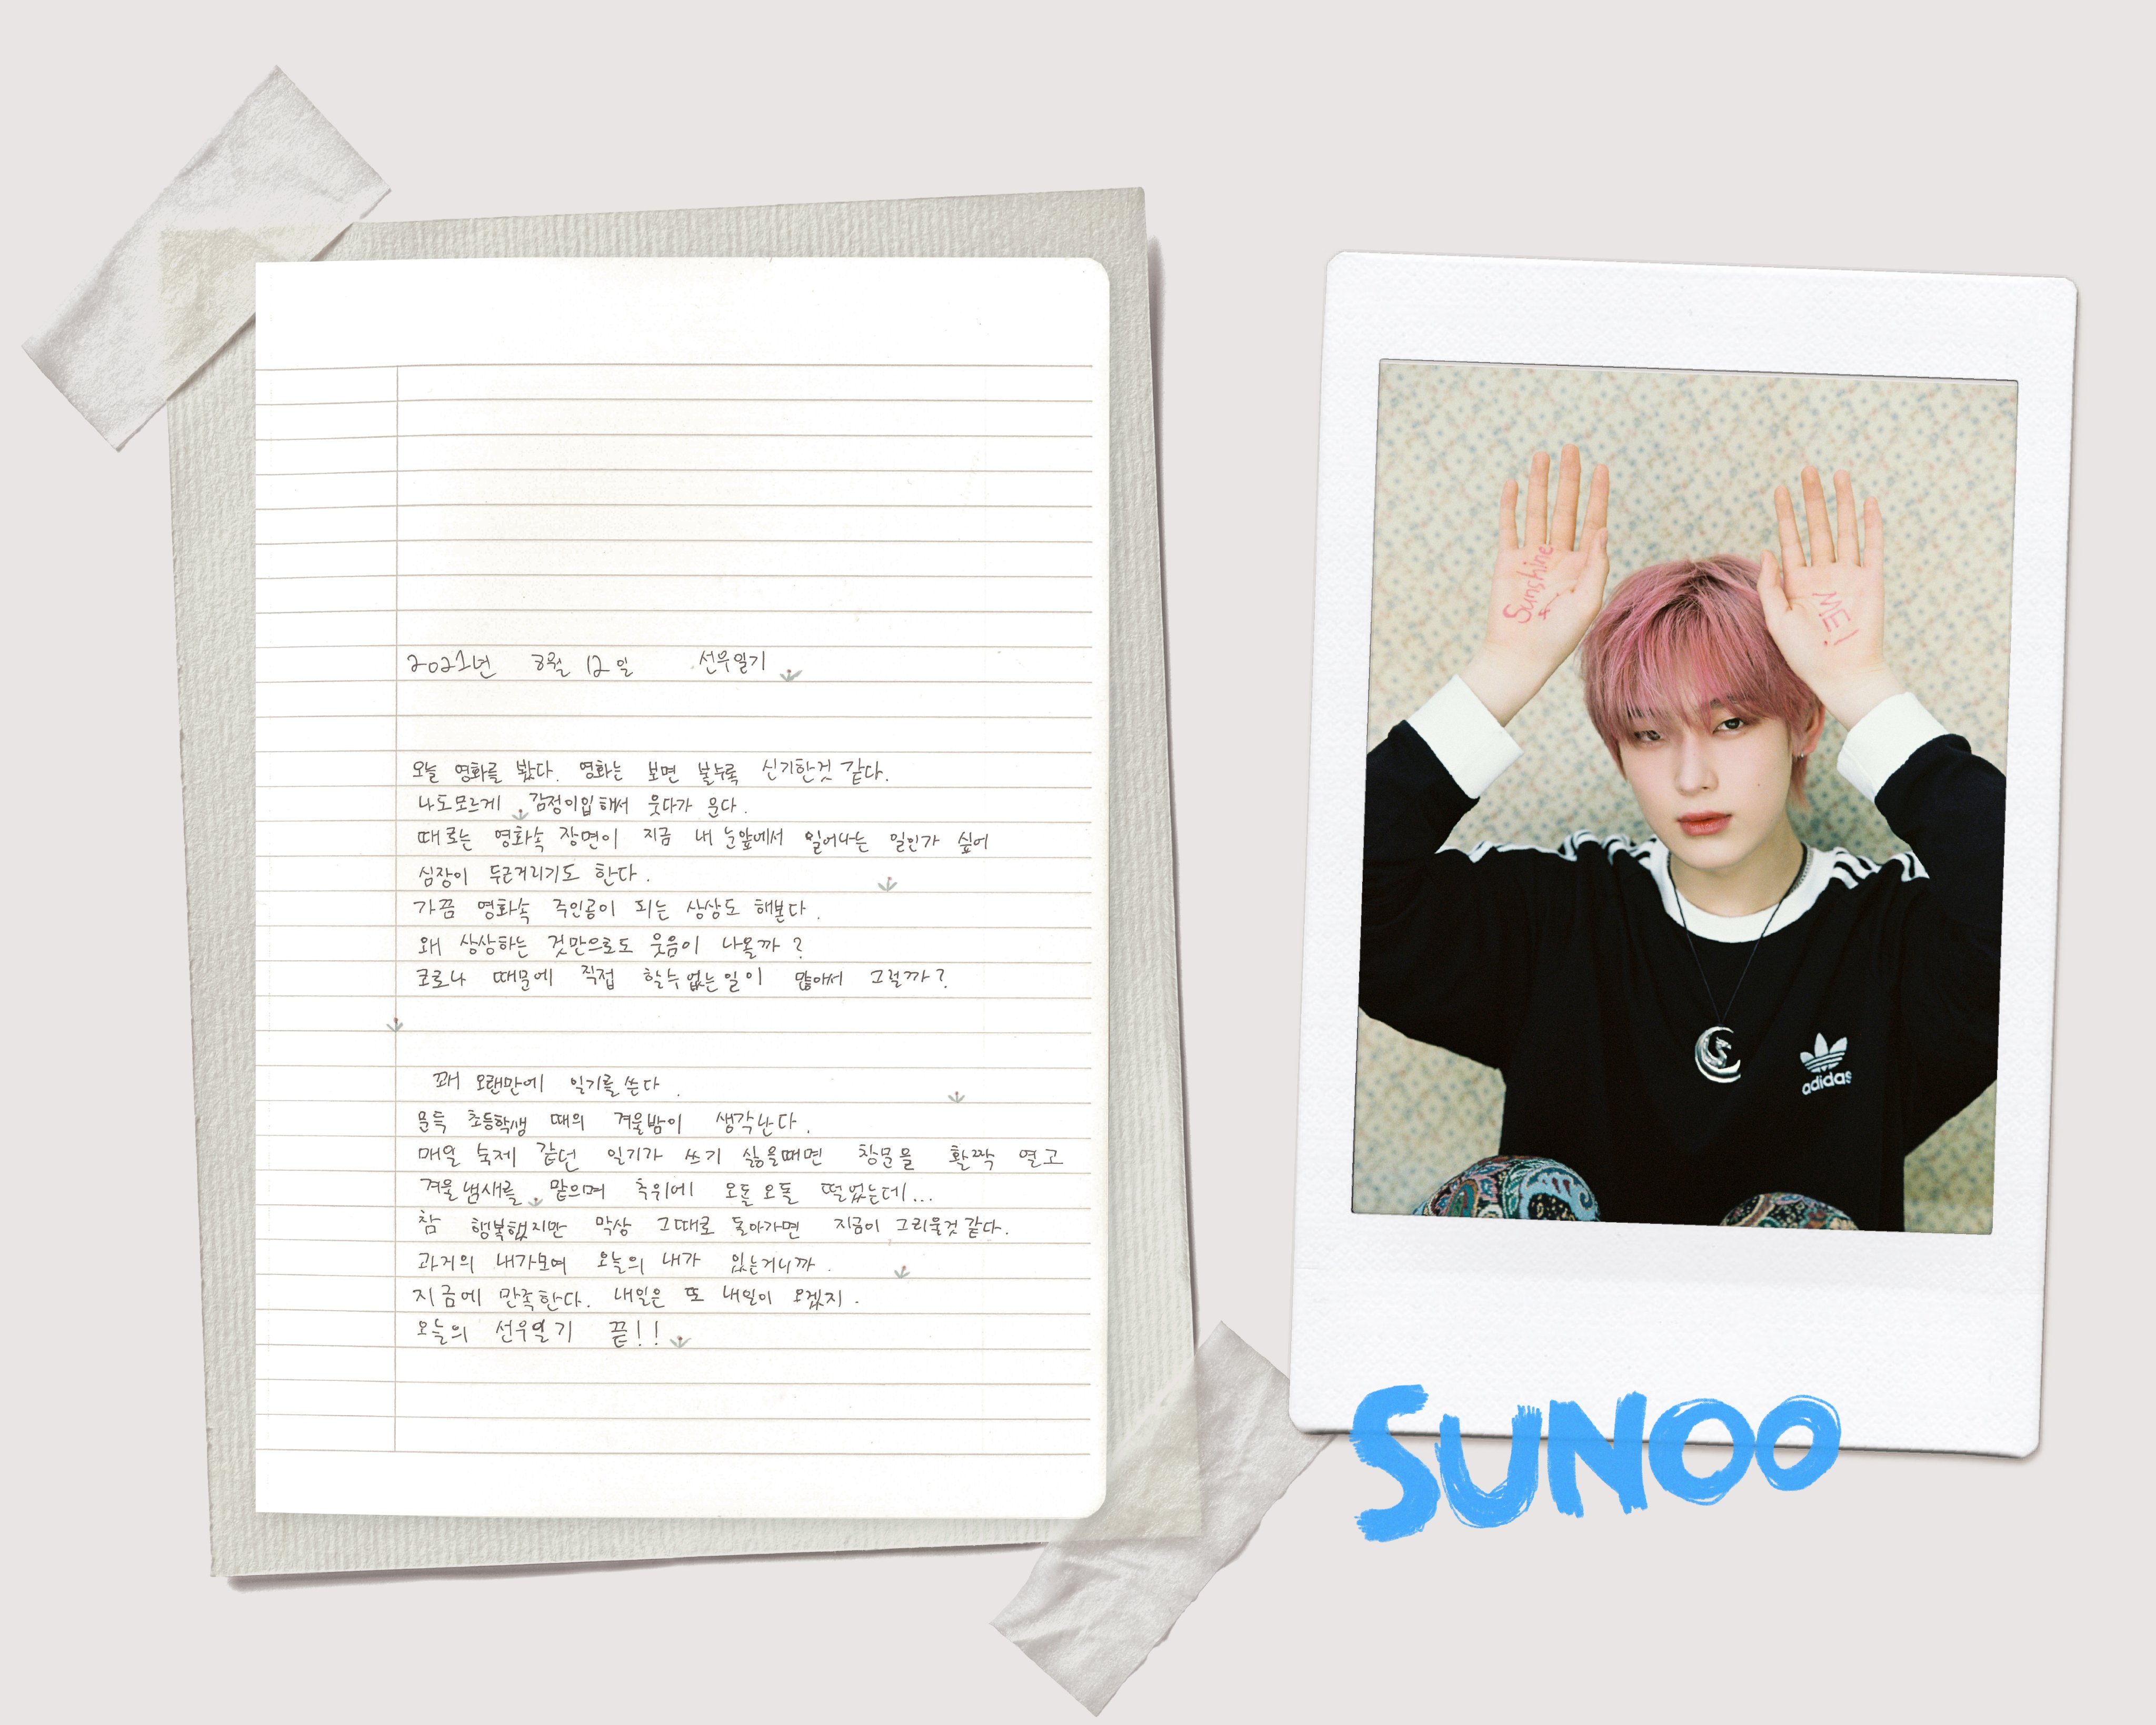 2021년 3월 12일 선우일기
오늘 영화를 봤다. 영화는 보면 볼수록 신기한것 같다.
나도모르게 감정이입해서 웃다가 운다.
때로는 영화속 장면이 지금 내 눈앞에서 일어나는 일인가 싶어
심장이 두근거리기도 한다.
가끔 영화속 주인공이 되는 상상도 해본다.
왜 상상하는 것만으로도 웃음이 나올까?
코로나 때문에 직접 할수없는일이 많아서 그럴까?
꽤 오랜만에 일기를 쓴다.
문득 초등학생 때의 겨울밤이 생각난다.
매일 숙제 같던 일기가 쓰기 싫을때면 창문을 활짝 열고
겨울냄새를 맡으며 추위에 오돌오돌 떨었는데...
참 행복했지만 막상 그때로 돌아가면 지금이 그리울것같다.
과거의 내가모여 오늘의 내가 있는거니까.
지금에 만족한다. 내일은 또 내일이 오겠지.
오늘의 선우일기 끝!!
Sunshine
ME!
adidas
SUNOO